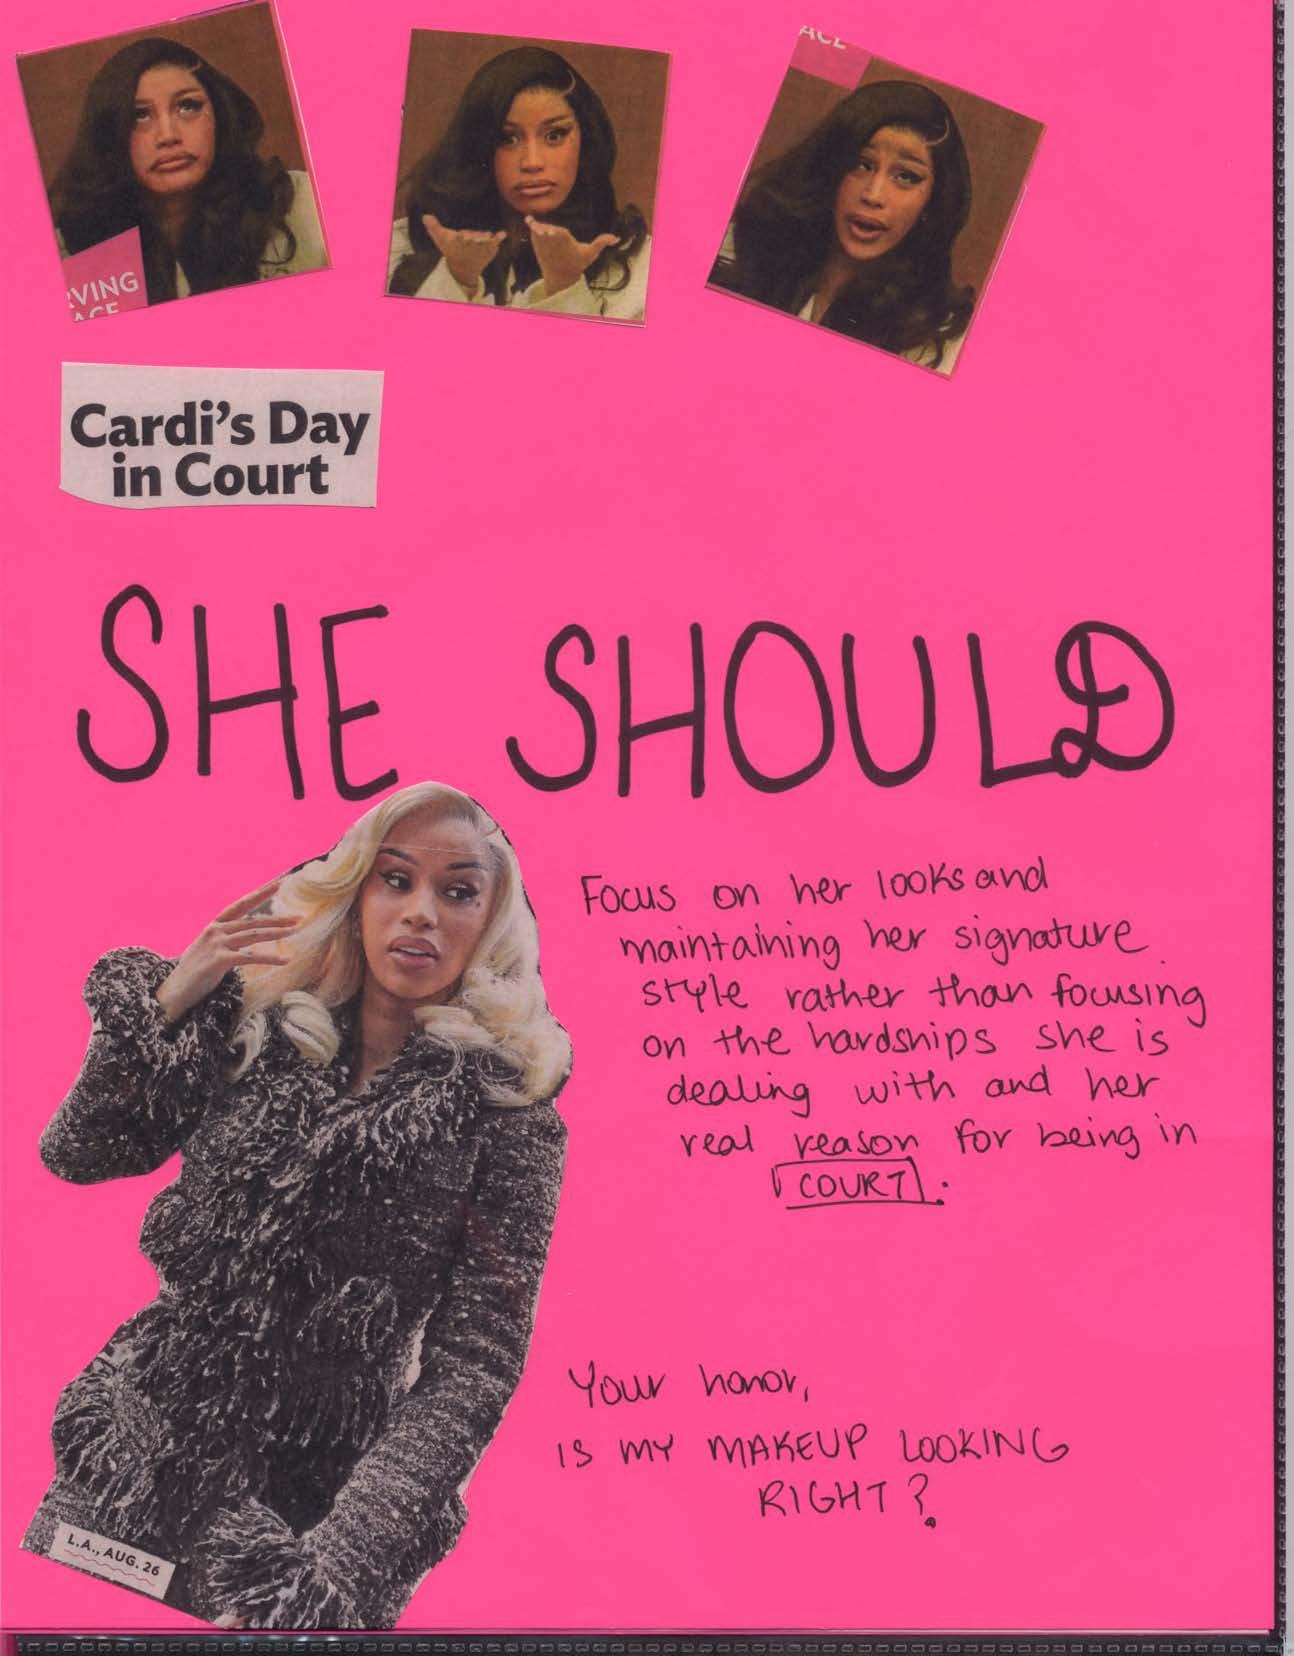 ACE
RVING
ACE
Cardi's Day
in Court
SHE SHOULD
Focus on her looks and
maintaining her signature
style rather than focusing
on the hardships she is
dealing with and her
real reason for being in
COURT.
Your honor,
IS MY MAKEUP LOOKING
RIGHT?
L.A., AUG. 26